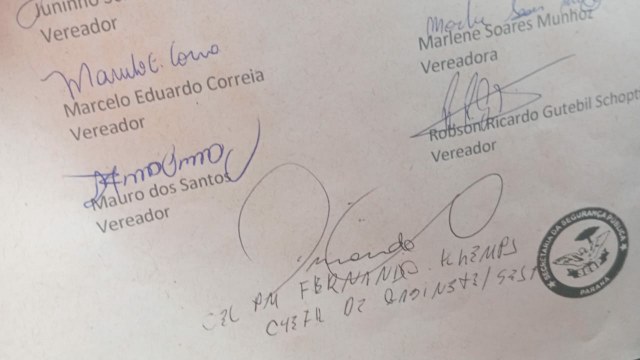 Juninho
Vereador
Marcelo Eduardo Correia
Vereador
Mauro dos Santos
Vereador
Marlene Soares Munhoz
Vereadora
Robson Ricardo Gutebil Schopt
Vereador
CEL PM FERNANDO KLEMPS
CHEFE DE GABINETE/SESP
SECRETARIA DA SEGURANÇA PÚBLICA
PARANÁ